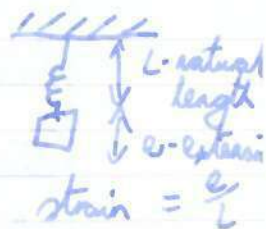 L-natural
length
e-extensi
strain = e/L